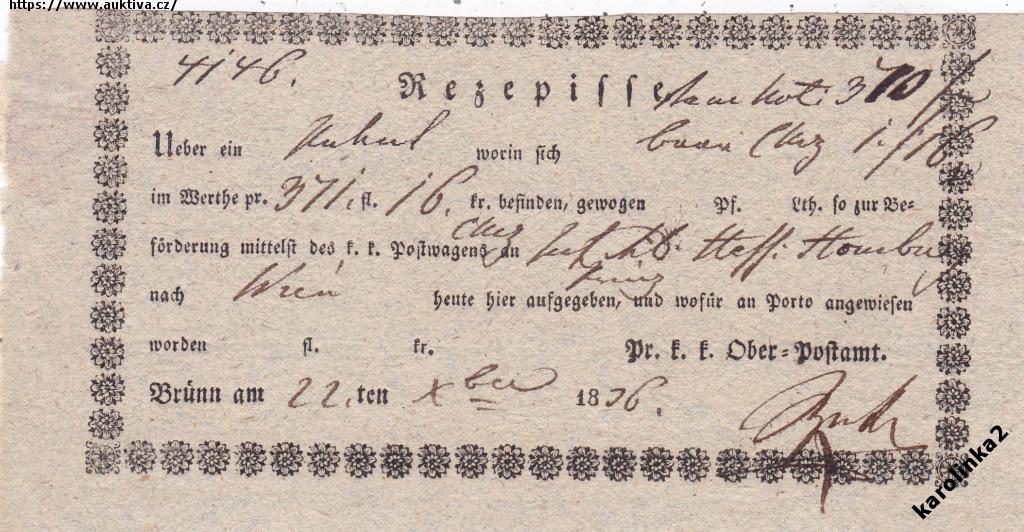 https://www.auktiva.cz/
4146.
Rezepisse 370 f
Ueber ein worin sich
im Werthe pr. 371. fl. 16. kr. befinden, gewogen Pf. Lth. so zur Be=
förderung mittelst des k. k. Postwagens an Hess: Hombu
nach Wien heute hier aufgegeben, und wofür an Porto angewiesen
worden fl. kr. Pr. k. k. Ober=Postamt.
Brünn am 22. ten Xber 1836.
karolinka2